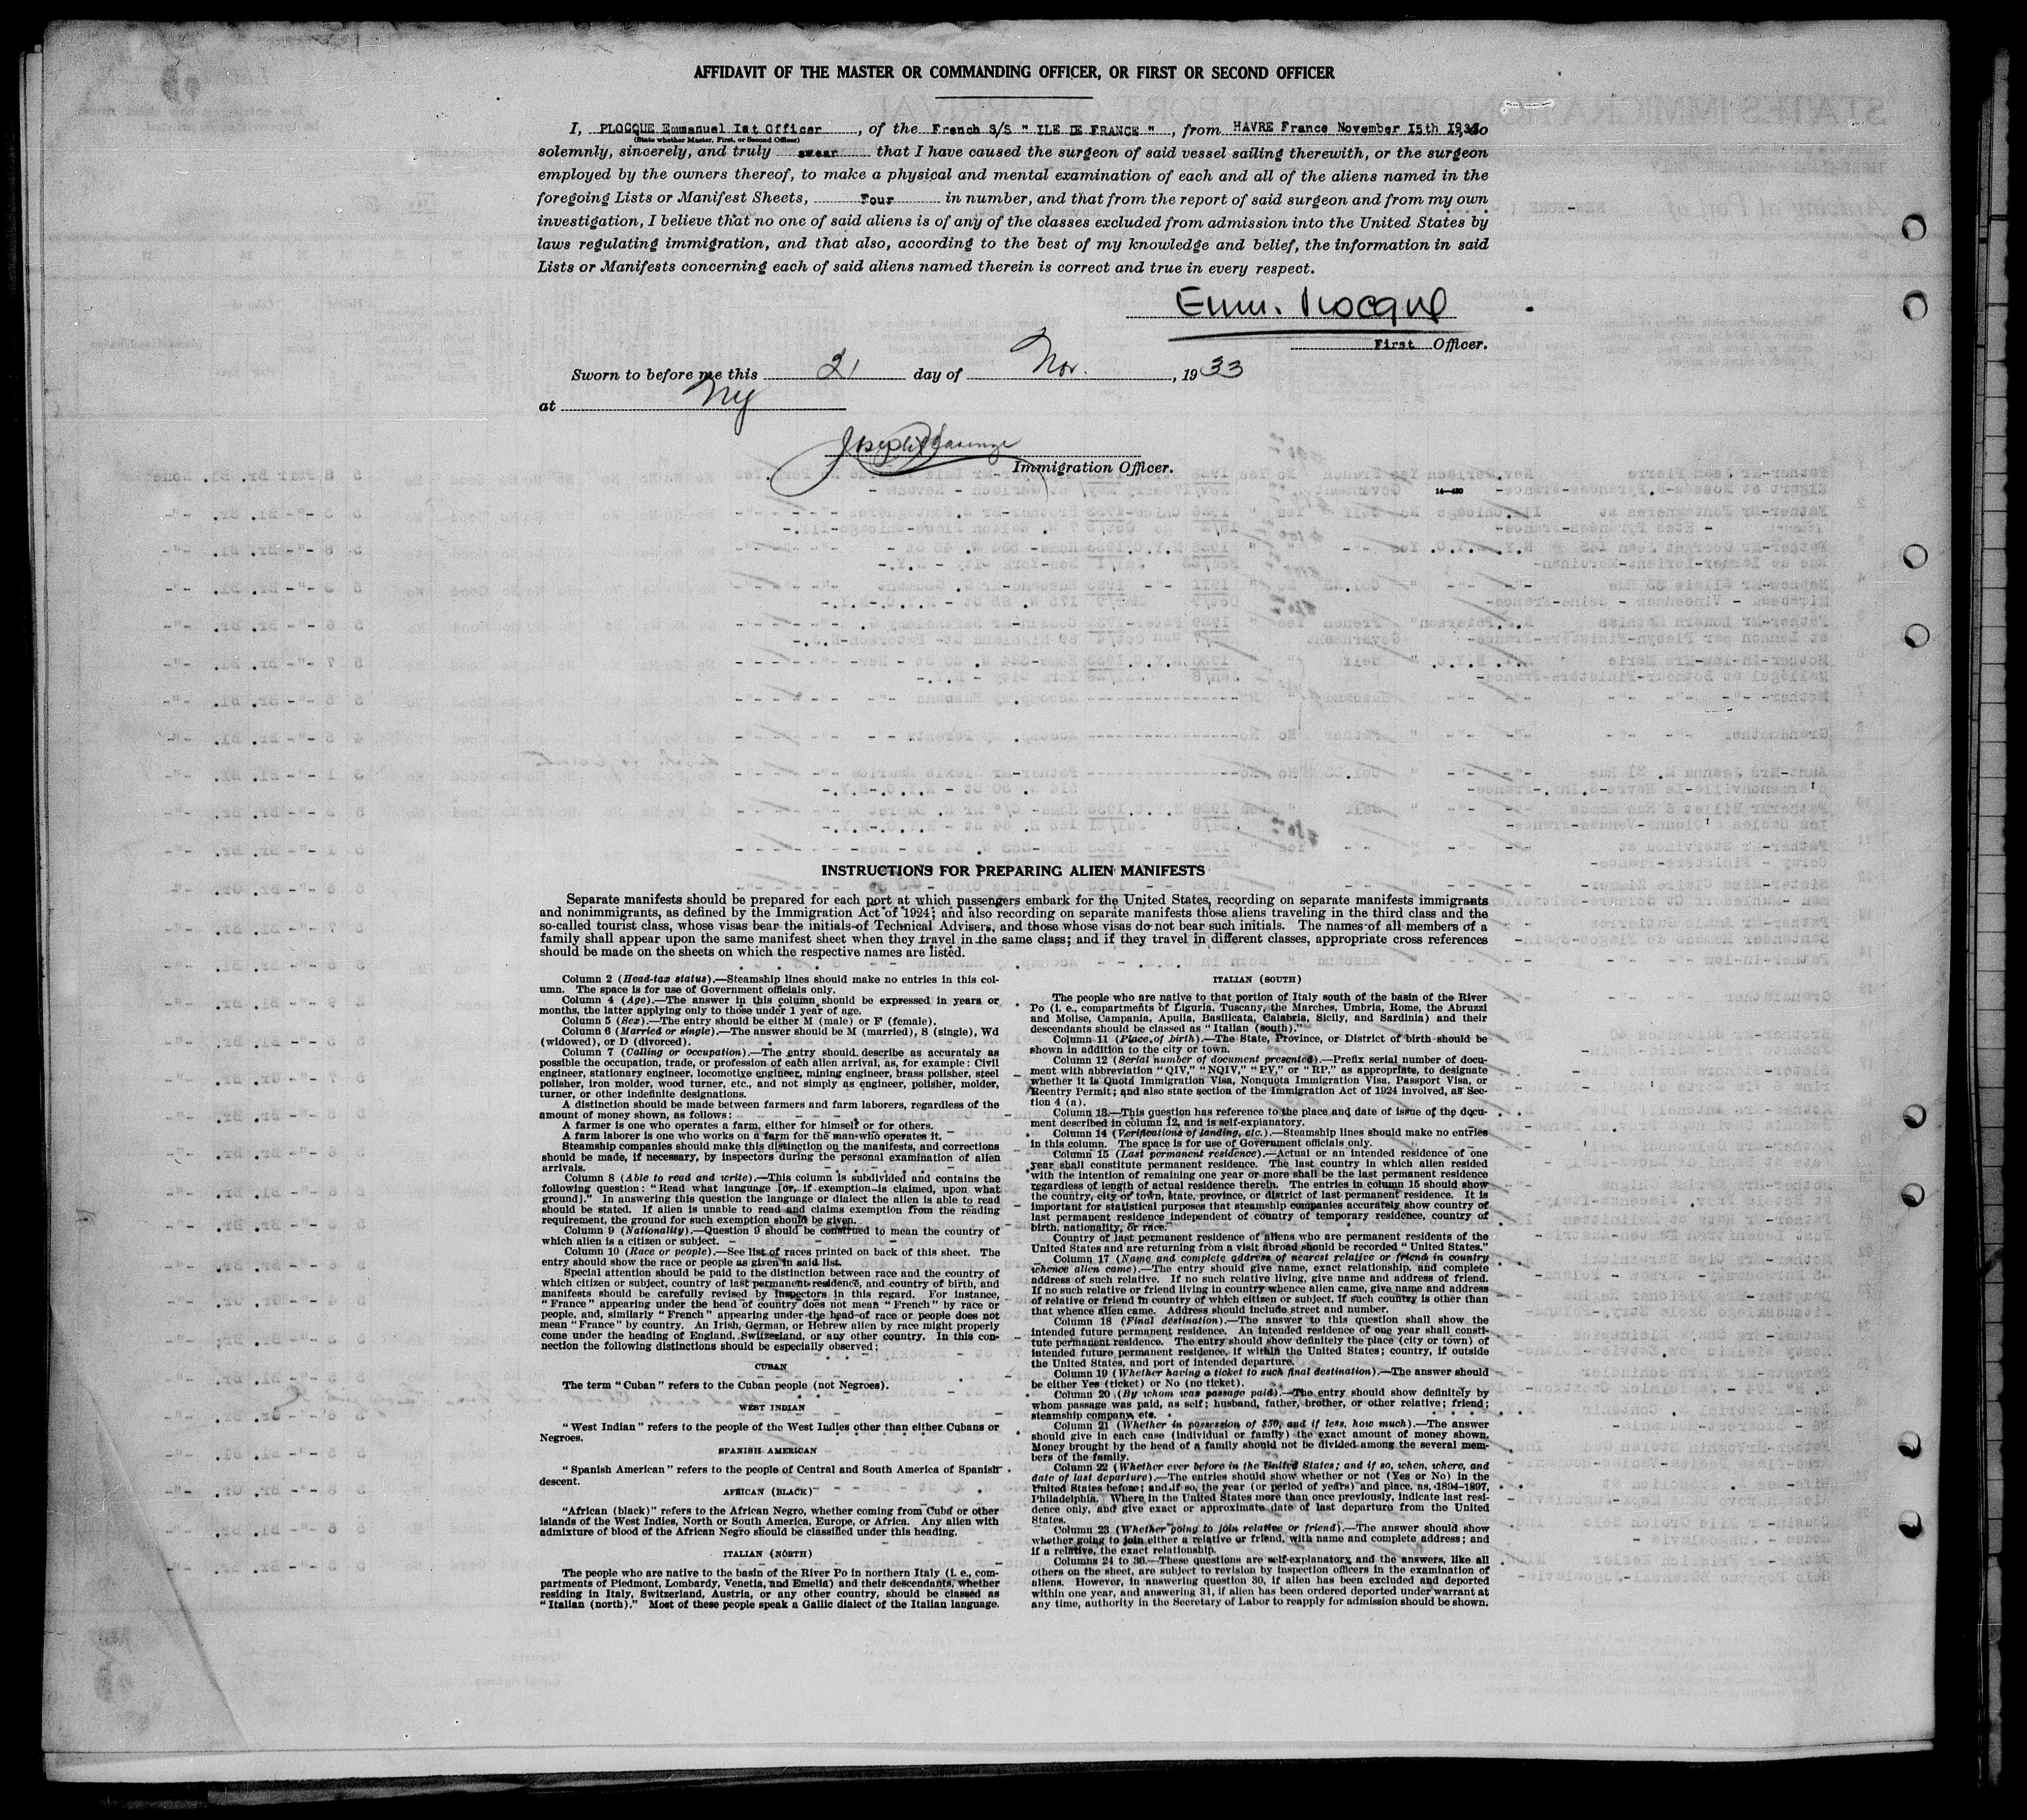 AFFIDAVIT OF THE MASTER OR COMMANDING OFFICER, OR FIRST OR SECOND OFFICER
I, PLOCQUE Emmanuel Ist Officer, of the French S/S " ILE DE FRANCE ", from HAVRE France November I5th I933, do
(State whether Master, First, or Second Officer)
solemnly, sincerely, and truly swear that I have caused the surgeon of said vessel sailing therewith, or the surgeon
employed by the owners thereof, to make a physical and mental examination of each and all of the aliens named in the
foregoing Lists or Manifest Sheets, Four in number, and that from the report of said surgeon and from my own
investigation, I believe that no one of said aliens is of any of the classes excluded from admission into the United States by
laws regulating immigration, and that also, according to the best of my knowledge and belief, the information in said
Lists or Manifests concerning each of said aliens named therein is correct and true in every respect.
Emm. Plocque
First Officer.
Sworn to before me this 21 day of Nov., 1933
at NY
Joseph
Immigration Officer.
14—430
INSTRUCTIONS FOR PREPARING ALIEN MANIFESTS
Separate manifests should be prepared for each port at which passengers embark for the United States, recording on separate manifests immigrants
and nonimmigrants, as defined by the Immigration Act of 1924; and also recording on separate manifests those aliens traveling in the third class and the
so-called tourist class, whose visas bear the initials of Technical Advisers, and those whose visas do not bear such initials. The names of all members of a
family shall appear upon the same manifest sheet when they travel in the same class; and if they travel in different classes, appropriate cross references
should be made on the sheets on which the respective names are listed.
Column 2 (Head-tax status).—Steamship lines should make no entries in this col-
umn. The space is for use of Government officials only.
Column 4 (Age).—The answer in this column should be expressed in years or
months, the latter applying only to those under 1 year of age.
Column 5 (Sex).—The entry should be either M (male) or F (female).
Column 6 (Married or single).—The answer should be M (married), S (single), Wd
(widowed), or D (divorced).
Column 7 (Calling or occupation).—The entry should describe as accurately as
possible the occupation, trade, or profession of each alien arrival, as, for example: Civil
engineer, stationary engineer, locomotive engineer, mining engineer, brass polisher, steel
polisher, iron molder, wood turner, etc., and not simply as engineer, polisher, molder,
turner, or other indefinite designations.
A distinction should be made between farmers and farm laborers, regardless of the
amount of money shown, as follows:
A farmer is one who operates a farm, either for himself or for others.
A farm laborer is one who works on a farm for the man who operates it.
Steamship companies should make this distinction on the manifests, and corrections
should be made, if necessary, by inspectors during the personal examination of alien
arrivals.
Column 8 (Able to read and write).—This column is subdivided and contains the
following question: "Read what language [or, if exemption is claimed, upon what
ground]." In answering this question the language or dialect the alien is able to read
should be stated. If alien is unable to read and claims exemption from the reading
requirement, the ground for such exemption should be given.
Column 9 (Nationality).—Question 9 should be construed to mean the country of
which alien is a citizen or subject.
Column 10 (Race or people).—See list of races printed on back of this sheet. The
entry should show the race or people as given in said list.
Special attention should be paid to the distinction between race and the country of
which citizen or subject, country of last permanent residence, and country of birth, and
manifests should be carefully revised by inspectors in this regard. For instance,
"France" appearing under the head of country does not mean "French" by race or
people, and, similarly "French" appearing under the head of race or people does not
mean "France" by country. An Irish, German, or Hebrew alien by race might properly
come under the heading of England, Switzerland, or any other country. In this con-
nection the following distinctions should be especially observed:
CUBAN
The term "Cuban" refers to the Cuban people (not Negroes).
WEST INDIAN
"West Indian" refers to the people of the West Indies other than either Cubans or
Negroes.
SPANISH AMERICAN
"Spanish American" refers to the people of Central and South America of Spanish
descent.
AFRICAN (BLACK)
"African (black)" refers to the African Negro, whether coming from Cuba or other
islands of the West Indies, North or South America, Europe, or Africa. Any alien with
admixture of blood of the African Negro should be classified under this heading.
ITALIAN (NORTH)
The people who are native to the basin of the River Po in northern Italy (i. e., com-
partments of Piedmont, Lombardy, Venetia, and Emelia) and their descendants, whether
residing in Italy, Switzerland, Austria, or any other country, should be classed as
"Italian (north)." Most of these people speak a Gallic dialect of the Italian language.
ITALIAN (SOUTH)
The people who are native to that portion of Italy south of the basin of the River
Po (i. e., compartments of Liguria, Tuscany, the Marches, Umbria, Rome, the Abruzzi
and Molise, Campania, Apulia, Basilicata, Calabria, Sicily, and Sardinia) and their
descendants should be classed as "Italian (south)."
Column 11 (Place of birth).—The State, Province, or District of birth should be
shown in addition to the city or town.
Column 12 (Serial number of document presented).—Prefix serial number of docu-
ment with abbreviation "QIV," "NQIV," "PV," or "RP," as appropriate, to designate
whether it is Quota Immigration Visa, Nonquota Immigration Visa, Passport Visa, or
Reentry Permit; and also state section of the Immigration Act of 1924 involved, as Sec-
tion 4 (a).
Column 13.—This question has reference to the place and date of issue of the docu-
ment described in column 12, and is self-explanatory.
Column 14 (Verifications of landing, etc.).—Steamship lines should make no entries
in this column. The space is for use of Government officials only.
Column 15 (Last permanent residence).—Actual or an intended residence of one
year shall constitute permanent residence. The last country in which alien resided
with the intention of remaining one year or more shall be the last permanent residence
regardless of length of actual residence therein. The entries in column 15 should show
the country, city or town, state, province, or district of last permanent residence. It is
important for statistical purposes that steamship companies accurately show country of
last permanent residence independent of country of temporary residence, country of
birth, nationality, or race.
Country of last permanent residence of aliens who are permanent residents of the
United States and are returning from a visit abroad should be recorded "United States."
Column 17 (Name and complete address of nearest relative or friend in country
whence alien came).—The entry should give name, exact relationship, and complete
address of such relative. If no such relative living, give name and address of friend.
If no such relative or friend living in country whence alien came, give name and address
of relative or friend in country of which citizen or subject, if such country is other than
that whence alien came. Address should include street and number.
Column 18 (Final destination).—The answer to this question shall show the
intended future permanent residence. An intended residence of one year shall consti-
tute permanent residence. The entry should show definitely the place (city or town) of
intended future permanent residence, if within the United States; country, if outside
the United States, and port of intended departure.
Column 19 (Whether having a ticket to such final destination).—The answer should
be either Yes (ticket) or No (no ticket).
Column 20 (By whom was passage paid).—The entry should show definitely by
whom passage was paid, as self; husband, father, brother, or other relative; friend;
steamship company, etc.
Column 21 (Whether in possession of $50, and if less, how much).—The answer
should give in each case (individual or family) the exact amount of money shown.
Money brought by the head of a family should not be divided among the several mem-
bers of the family.
Column 22 (Whether ever before in the United States; and if so, when, where, and
date of last departure).—The entries should show whether or not (Yes or No) in the
United States before; and if so, the year (or period of years) and place, as, 1894-1897,
Philadelphia. Where in the United States more than once previously, indicate last resi-
dence only, and give exact or approximate date of last departure from the United
States.
Column 23 (Whether going to join relative or friend).—The answer should show
whether going to join either a relative or friend, with name and complete address; and
if a relative, the exact relationship.
Columns 24 to 36.—These questions are self-explanatory, and the answers, like all
others on the sheet, are subject to revision by inspection officers in the examination of
aliens. However, in answering question 30, if alien has been excluded and deported
within one year, and answering 31, if alien has been ordered deported under warrant at
any time, authority in the Secretary of Labor to reapply for admission should be shown.